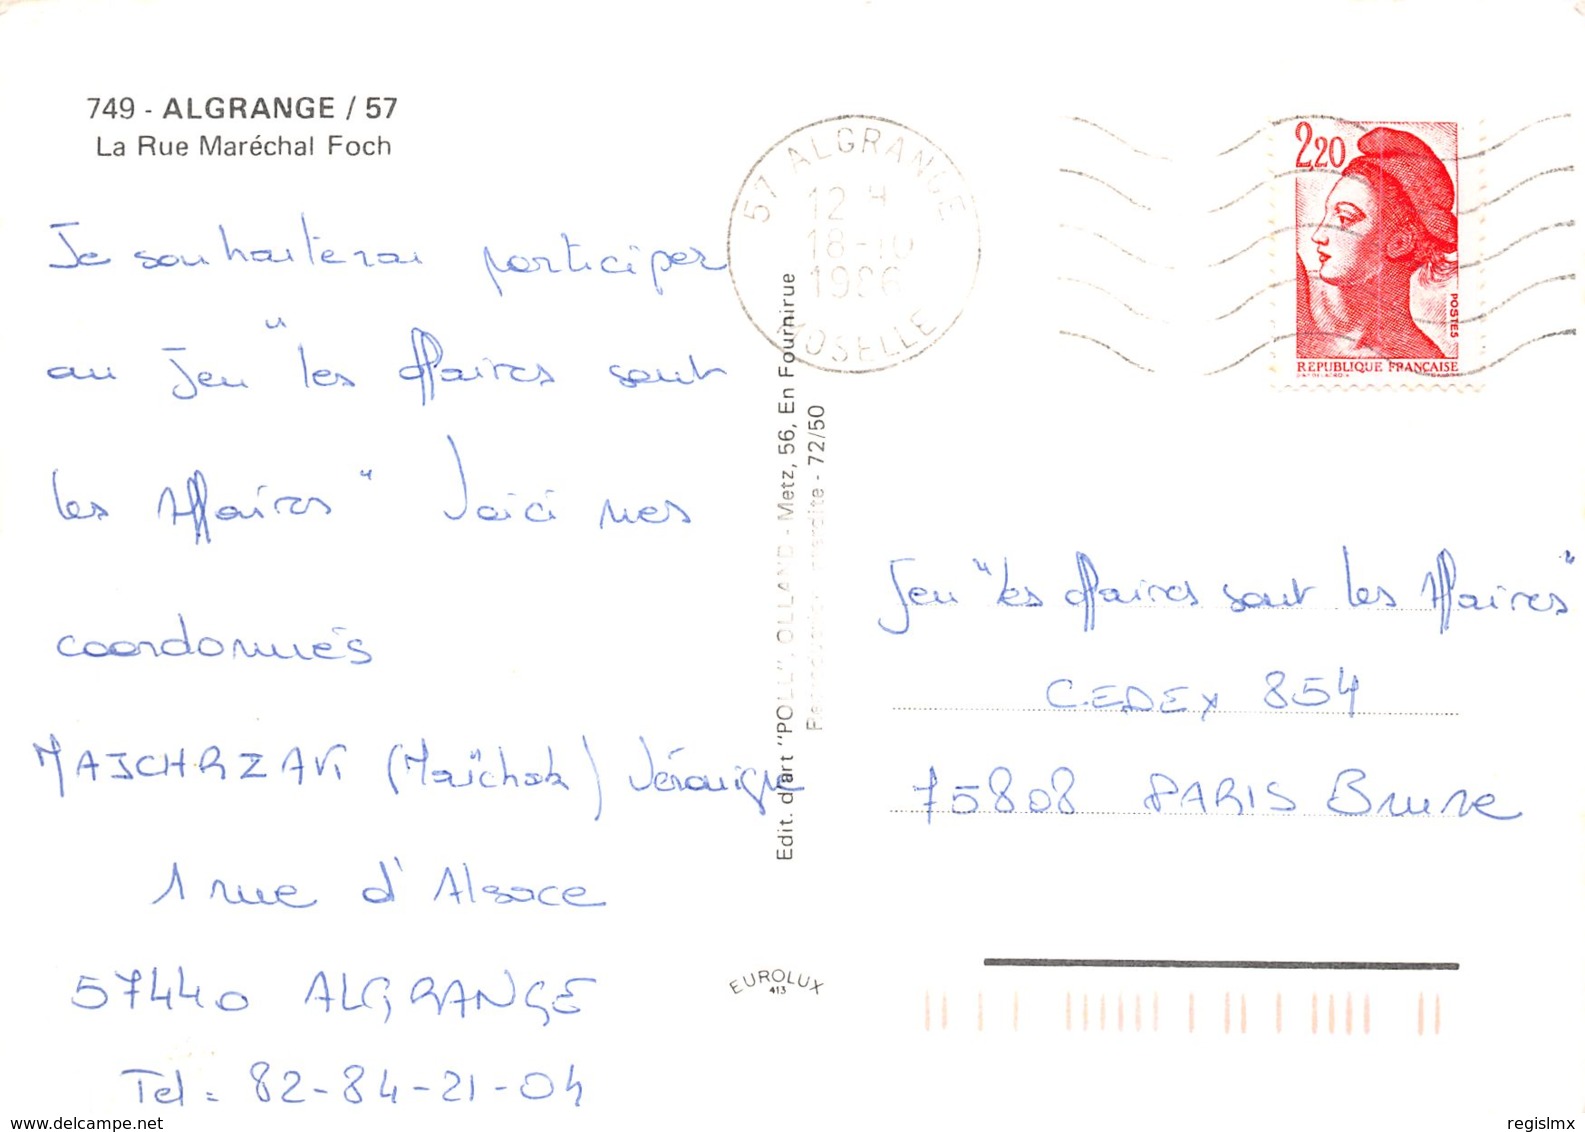 749 - ALGRANGE / 57
La Rue Maréchal Foch
57 ALGRANGE
12 H
18-10
1986
MOSELLE
2,20
POSTES
REPUBLIQUE FRANÇAISE
Je souhaiterai participer
au jeu "les affaires sont
les Affaires" Voici mes
coordonnués
MAJCHRZAK (Maïchak) Véronique
1 rue d'Alsace
57440 ALGRANGE
Tel = 82-84-21-04
Edit. d'art "POLL", OLLAND - Metz, 56, En Fournirue
Reproduction interdite - 72/50
Jeu "les affaires sont les Affaires"
CEDEX 854
75808 PARIS Brune
EUROLUX
413
www.delcampe.net
regislmx